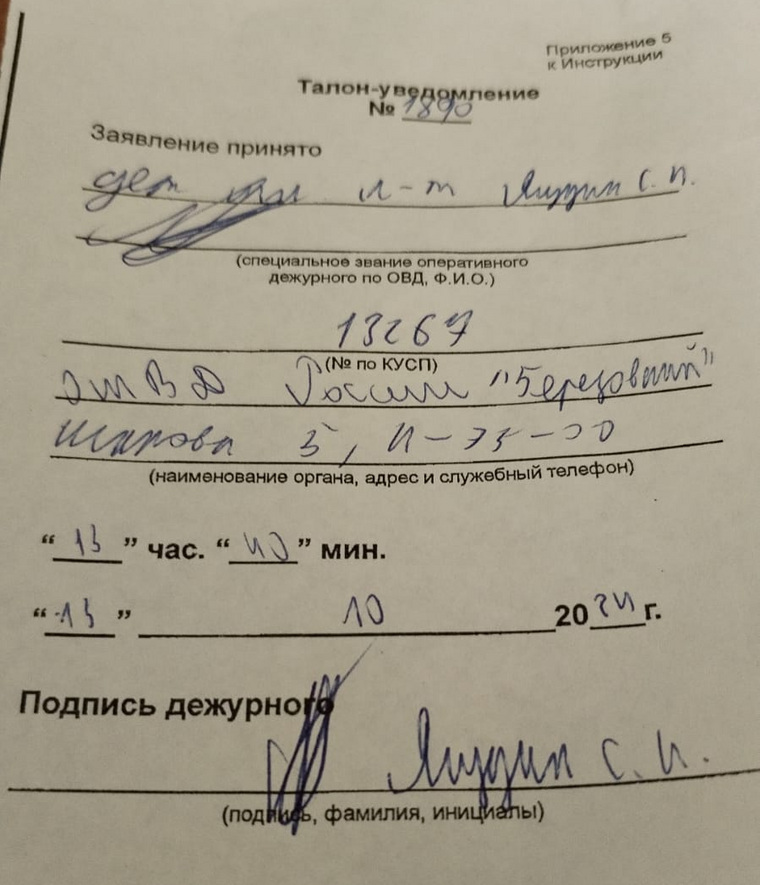 Приложение 5
к Инструкции
Талон-уведомление
№ 1890
Заявление принято
л-т С. И.
(специальное звание оперативного
дежурного по ОВД, Ф.И.О.)
13267
(№ по КУСП)
ОМВД России "Березовский"
5, 4-35-00
(наименование органа, адрес и служебный телефон)
“ 13 ” час. “ 40 ” мин.
“ 13 ” 10 20 24 г.
Подпись дежурного
С. И.
(подпись, фамилия, инициалы)